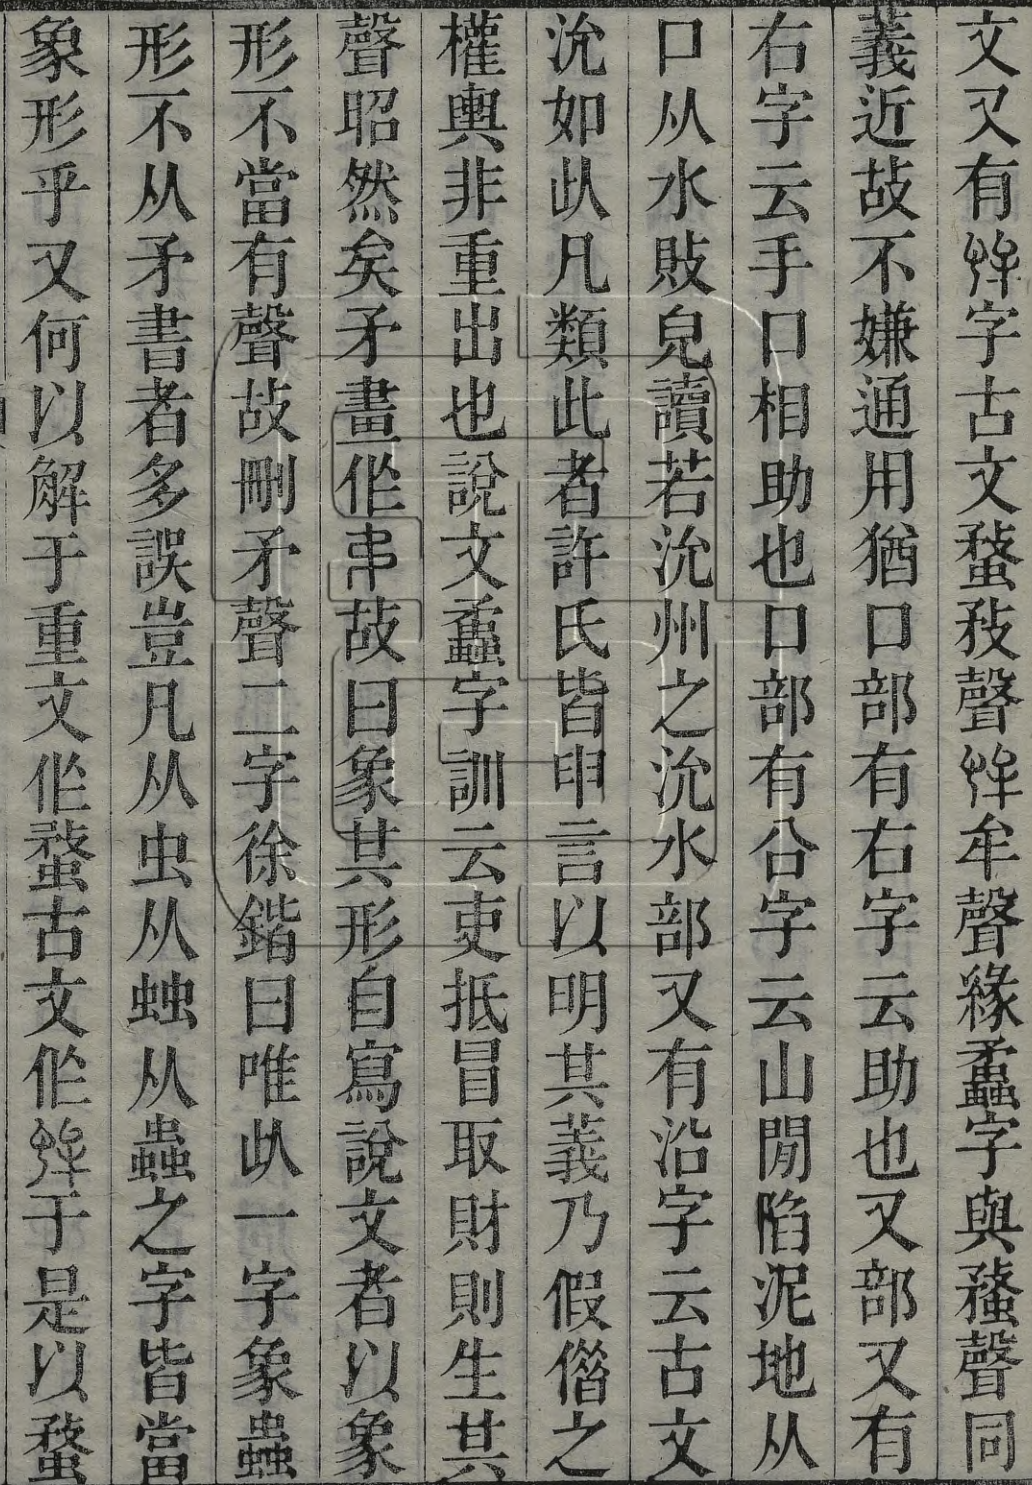 文又有蛑字古文蝥敄聲蛑牟聲緣蟊字與蝥聲同
義近故不嫌通用猶口部有右字云助也又部又有
右字云手口相助也口部有㕣字云山閒陷泥地从
口从水敗皃讀若沇州之沇水部又有沿字云古文
沇如此凡類此者許氏皆申言以明其義乃假借之
權輿非重出也說文蟊字訓云吏抵冒取財則生其
聲昭然矣矛畫作故曰象其形自寫說文者以象
形不當有聲故刪矛聲二字徐鍇曰唯此一字象蟲
形不从矛書者多誤豈凡从虫从䖵从蟲之字皆當
象形乎又何以解于重文作蝥古文作蛑于是以蝥